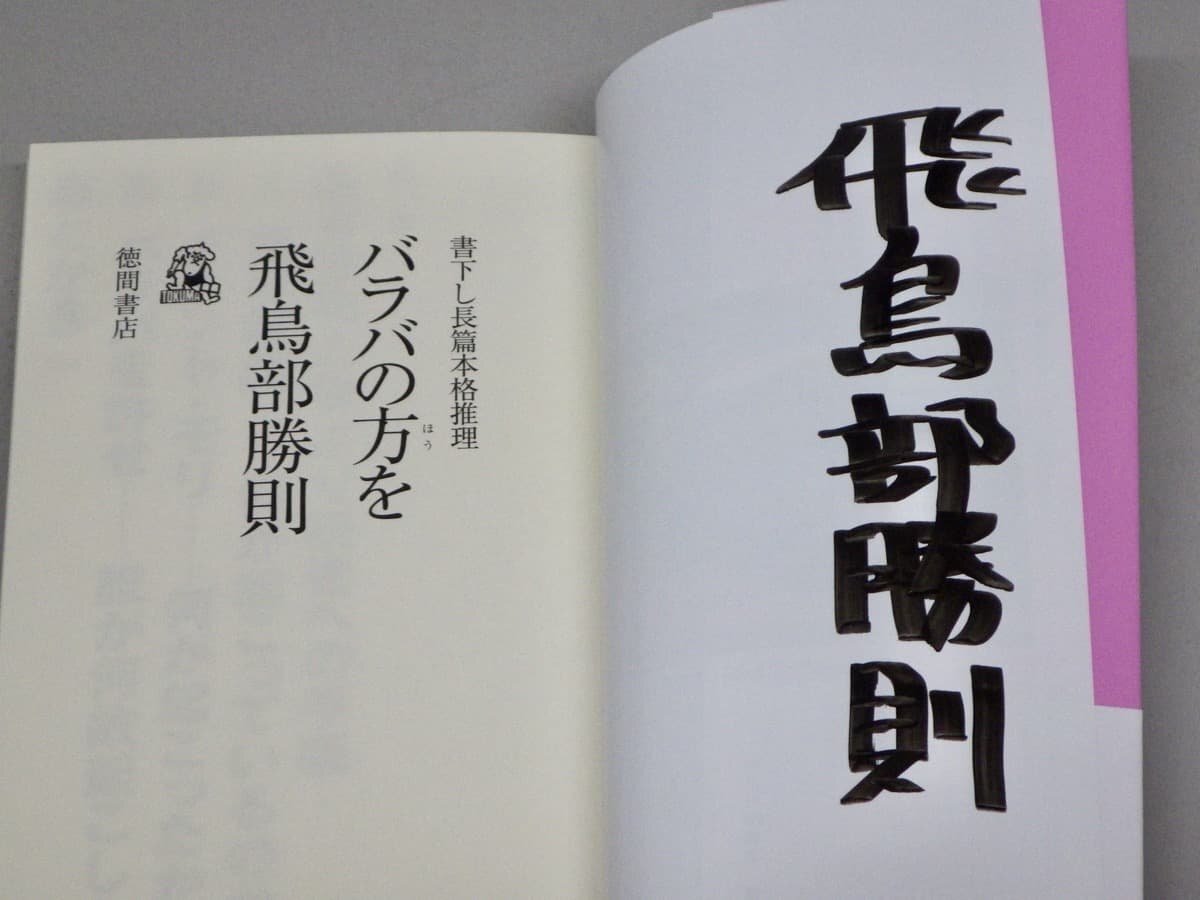 飛鳥部勝則
書下し長篇本格推理
バラバの方を
ほう
飛鳥部勝則
TOKUMA
徳間書店